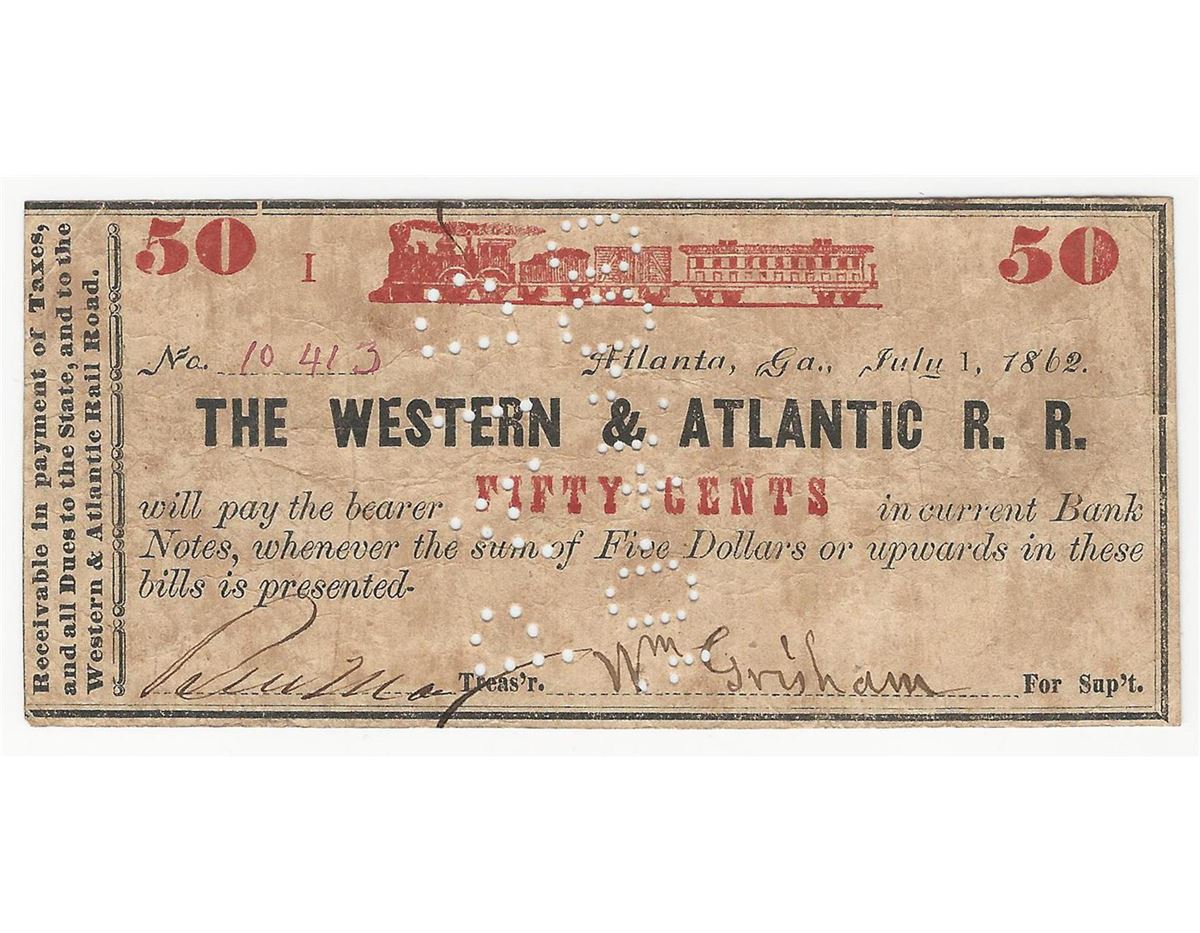 Receivable in payment of Taxes,
and all Dues to the State, and to the
Western & Atlantic Rail Road.
50 I 50
No. 10 413 Atlanta, Ga., July 1, 1862.
THE WESTERN & ATLANTIC R. R.
will pay the bearer FIFTY CENTS in current Bank
Notes, whenever the sum of Five Dollars or upwards in these
bills is presented-
Ben May Treas'r. Wm Grisham For Sup't.